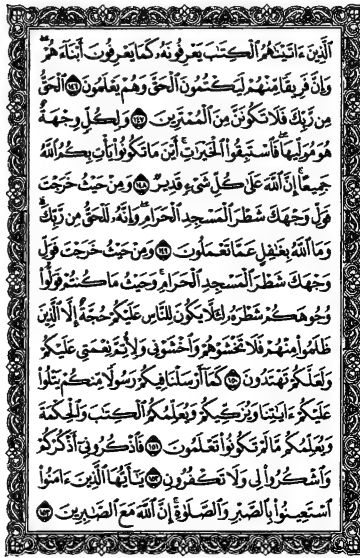 الَّذِينَ ءَاتَيْنَٰهُمُ الْكِتَٰبَ يَعْرِفُونَهُ كَمَا يَعْرِفُونَ أَبْنَاءَهُمْ
وَإِنَّ فَرِيقًا مِنْهُمْ لَيَكْتُمُونَ الْحَقَّ وَهُمْ يَعْلَمُونَ ١٤٦ الْحَقُّ
مِنْ رَبِّكَ فَلَا تَكُونَنَّ مِنَ الْمُمْتَرِينَ ١٤٧ وَلِكُلٍّ وِجْهَةٌ
هُوَ مُوَلِّيهَا فَاسْتَبِقُوا الْخَيْرَٰتِ أَيْنَ مَا تَكُونُوا يَأْتِ بِكُمُ اللَّهُ
جَمِيعًا إِنَّ اللَّهَ عَلَىٰ كُلِّ شَيْءٍ قَدِيرٌ ١٤٨ وَمِنْ حَيْثُ خَرَجْتَ
فَوَلِّ وَجْهَكَ شَطْرَ الْمَسْجِدِ الْحَرَامِ وَإِنَّهُ لَلْحَقُّ مِنْ رَبِّكَ
وَمَا اللَّهُ بِغَٰفِلٍ عَمَّا تَعْمَلُونَ ١٤٩ وَمِنْ حَيْثُ خَرَجْتَ فَوَلِّ
وَجْهَكَ شَطْرَ الْمَسْجِدِ الْحَرَامِ وَحَيْثُ مَا كُنْتُمْ فَوَلُّوا
وُجُوهَكُمْ شَطْرَهُ لِئَلَّا يَكُونَ لِلنَّاسِ عَلَيْكُمْ حُجَّةٌ إِلَّا الَّذِينَ
ظَلَمُوا مِنْهُمْ فَلَا تَخْشَوْهُمْ وَاخْشَوْنِي وَلِأُتِمَّ نِعْمَتِي عَلَيْكُمْ
وَلَعَلَّكُمْ تَهْتَدُونَ ١٥٠ كَمَا أَرْسَلْنَا فِيكُمْ رَسُولًا مِنْكُمْ يَتْلُوا
عَلَيْكُمْ ءَايَٰتِنَا وَيُزَكِّيكُمْ وَيُعَلِّمُكُمُ الْكِتَٰبَ وَالْحِكْمَةَ
وَيُعَلِّمُكُمْ مَا لَمْ تَكُونُوا تَعْلَمُونَ ١٥١ فَاذْكُرُونِي أَذْكُرْكُمْ
وَاشْكُرُوا لِي وَلَا تَكْفُرُونِ ١٥٢ يَٰأَيُّهَا الَّذِينَ ءَامَنُوا
اسْتَعِينُوا بِالصَّبْرِ وَالصَّلَوٰةِ إِنَّ اللَّهَ مَعَ الصَّٰبِرِينَ ١٥٣